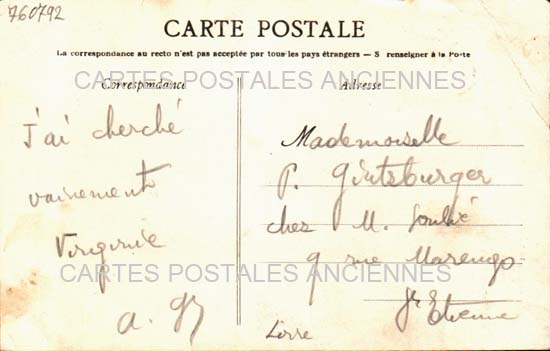 760792
CARTE POSTALE
La correspondance au recto n'est pas acceptée par tous les pays étrangers — S renseigner à la Poste
CARTES POSTALES ANCIENNES
Correspondance
Adresse
J'ai cherché
vainement
Virginie
a. 
Mademoiselle
P. Gintzburger
chez M. Soulié
9 rue Marengo
St Etienne
Loire
CARTES POSTALES ANCIENNES